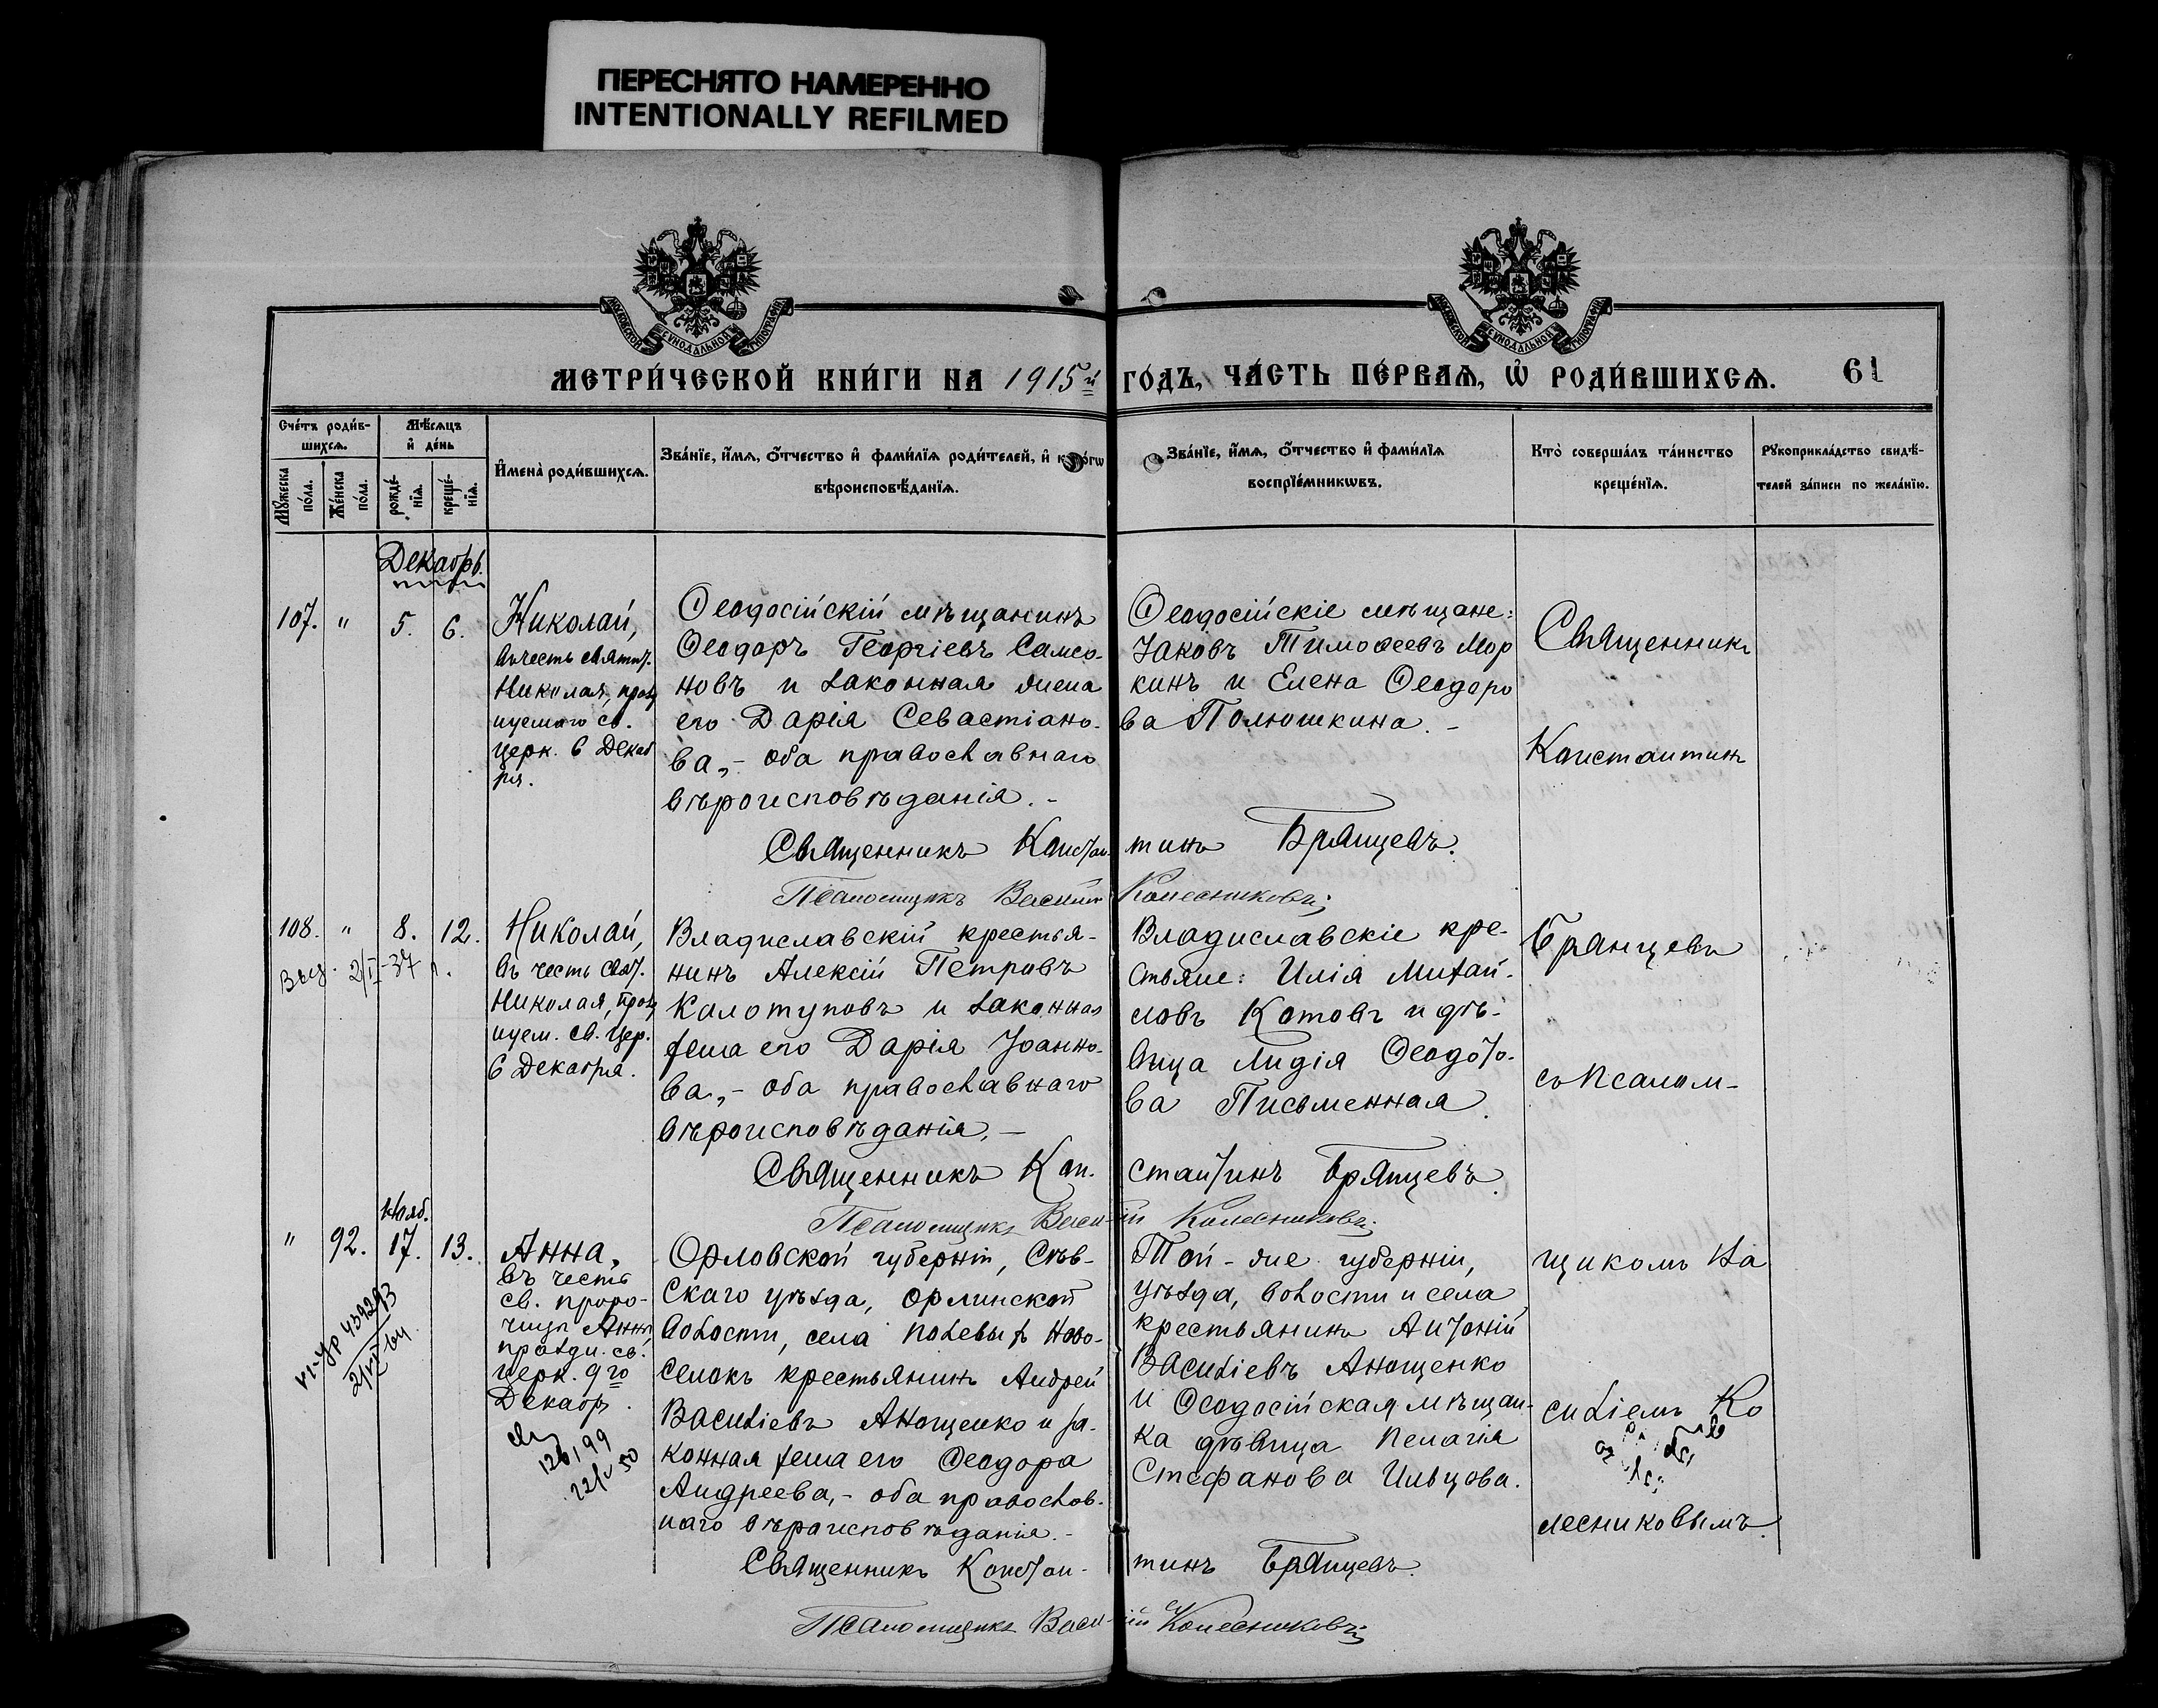 ПЕРЕСНЯТО НАМЕРЕННО
INTENTIONALLY REFILMED
МОСКОВСКОЙ СѴНОДАЛЬНОЙ ТИПОГРАФІИ
МОСКОВСКОЙ СѴНОДАЛЬНОЙ ТИПОГРАФІИ
МЕТРИ́ЧЕСКОЙ КНИ́ГИ НА 1915й ГО́ДЪ, ЧА́СТЬ ПЕ́РВАѦ, Ѡ҆ РОДИ́ВШИХСѦ. 61
Сче́тъ роди́в-
шихсѧ.
Мꙋ́жеска по́ла.
Же́нска по́ла.
Мѣ́сѧцъ
и҆ де́нь
рожде́-
нїѧ.
креще́-
нїѧ.
И҆мена̀ роди́вшихсѧ.
Зва́нїе, и҆́мѧ, ѻ҆́тчество и҆ фами́лїѧ роди́телей, и҆ како́гѡ
вѣроисповѣ́данїѧ.
Зва́нїе, и҆́мѧ, ѻ҆́тчество и҆ фами́лїѧ
воспрїе́мникѡвъ.
Кто̀ соверша́лъ та́инство
креще́нїѧ.
Рꙋкоприкла́дство свидѣ́-
телей за́писи по жела́нїю.
Декабрь.
107. " 5. 6.
Николай,
въ честь святит.
Николая, празд
нуемаго св.
церк. 6 Декаб
ря.
Ѳеодосійскій мѣщанинъ
Ѳеодоръ Георгіевъ Самсо-
новъ и законная жена
его Дарія Севастіано-
ва,- оба православнаго
вѣроисповѣданія.-
Ѳеодосійскіе мѣщане:
Іаковъ Тимоѳеевъ Мор
кинъ и Елена Ѳеодоро
ва Полюшкина.-
Священникъ
Константинъ
Священникъ Констан-тинъ Брянцевъ.
Псаломщикъ Василій Колесниковъ
108. " 8. 12.
Выд. 2/I-37 г.
Николай,
въ честь свят.
Николая, празд
нуем. св. цер.
6 Декабря.
Владиславскій крестья-
нинъ Алексій Петровъ
Колотуповъ и законная
жена его Дарія Іоанно-
ва,- оба православнаго
вѣроисповѣданія.-
Владиславскіе кре-
стьяне: Илія Михай-
ловъ Котовъ и дѣ-
вица Лидія Ѳеодо­ро-
ва Письменная.
Брянцевъ
съ псалом-
Священникъ Кон-стантинъ Брянцевъ.
Псаломщикъ Василій Колесниковъ
Нояб.
" 92. 17. 13.
Анна,
въ честь
св. проро-
чицы Анны
праздн. св.
церк. 9го
Декабр.
22/V 50
Орловской губерніи, Сѣв-
скаго уѣзда, Орлинской
волости, села Полевыхъ Ново-
селокъ крестьянинъ Андрей
Василіевъ Анощенко и за-
конная жена его Ѳеодора
Андреева,- оба православ-
наго вѣроисповѣданія.-
Той-же губерніи,
уѣзда, волости и села
крестьянинъ Антоній
Василіевъ Анощенко
и Ѳеодосійская мѣщан-
ка дѣвица Пелагія
Стефанова Ильцова.
щикомъ Ва
силіемъ Ко
лесниковымъ.
Священникъ Констан-тинъ Брянцевъ.
Псаломщикъ Василій Колесниковъ